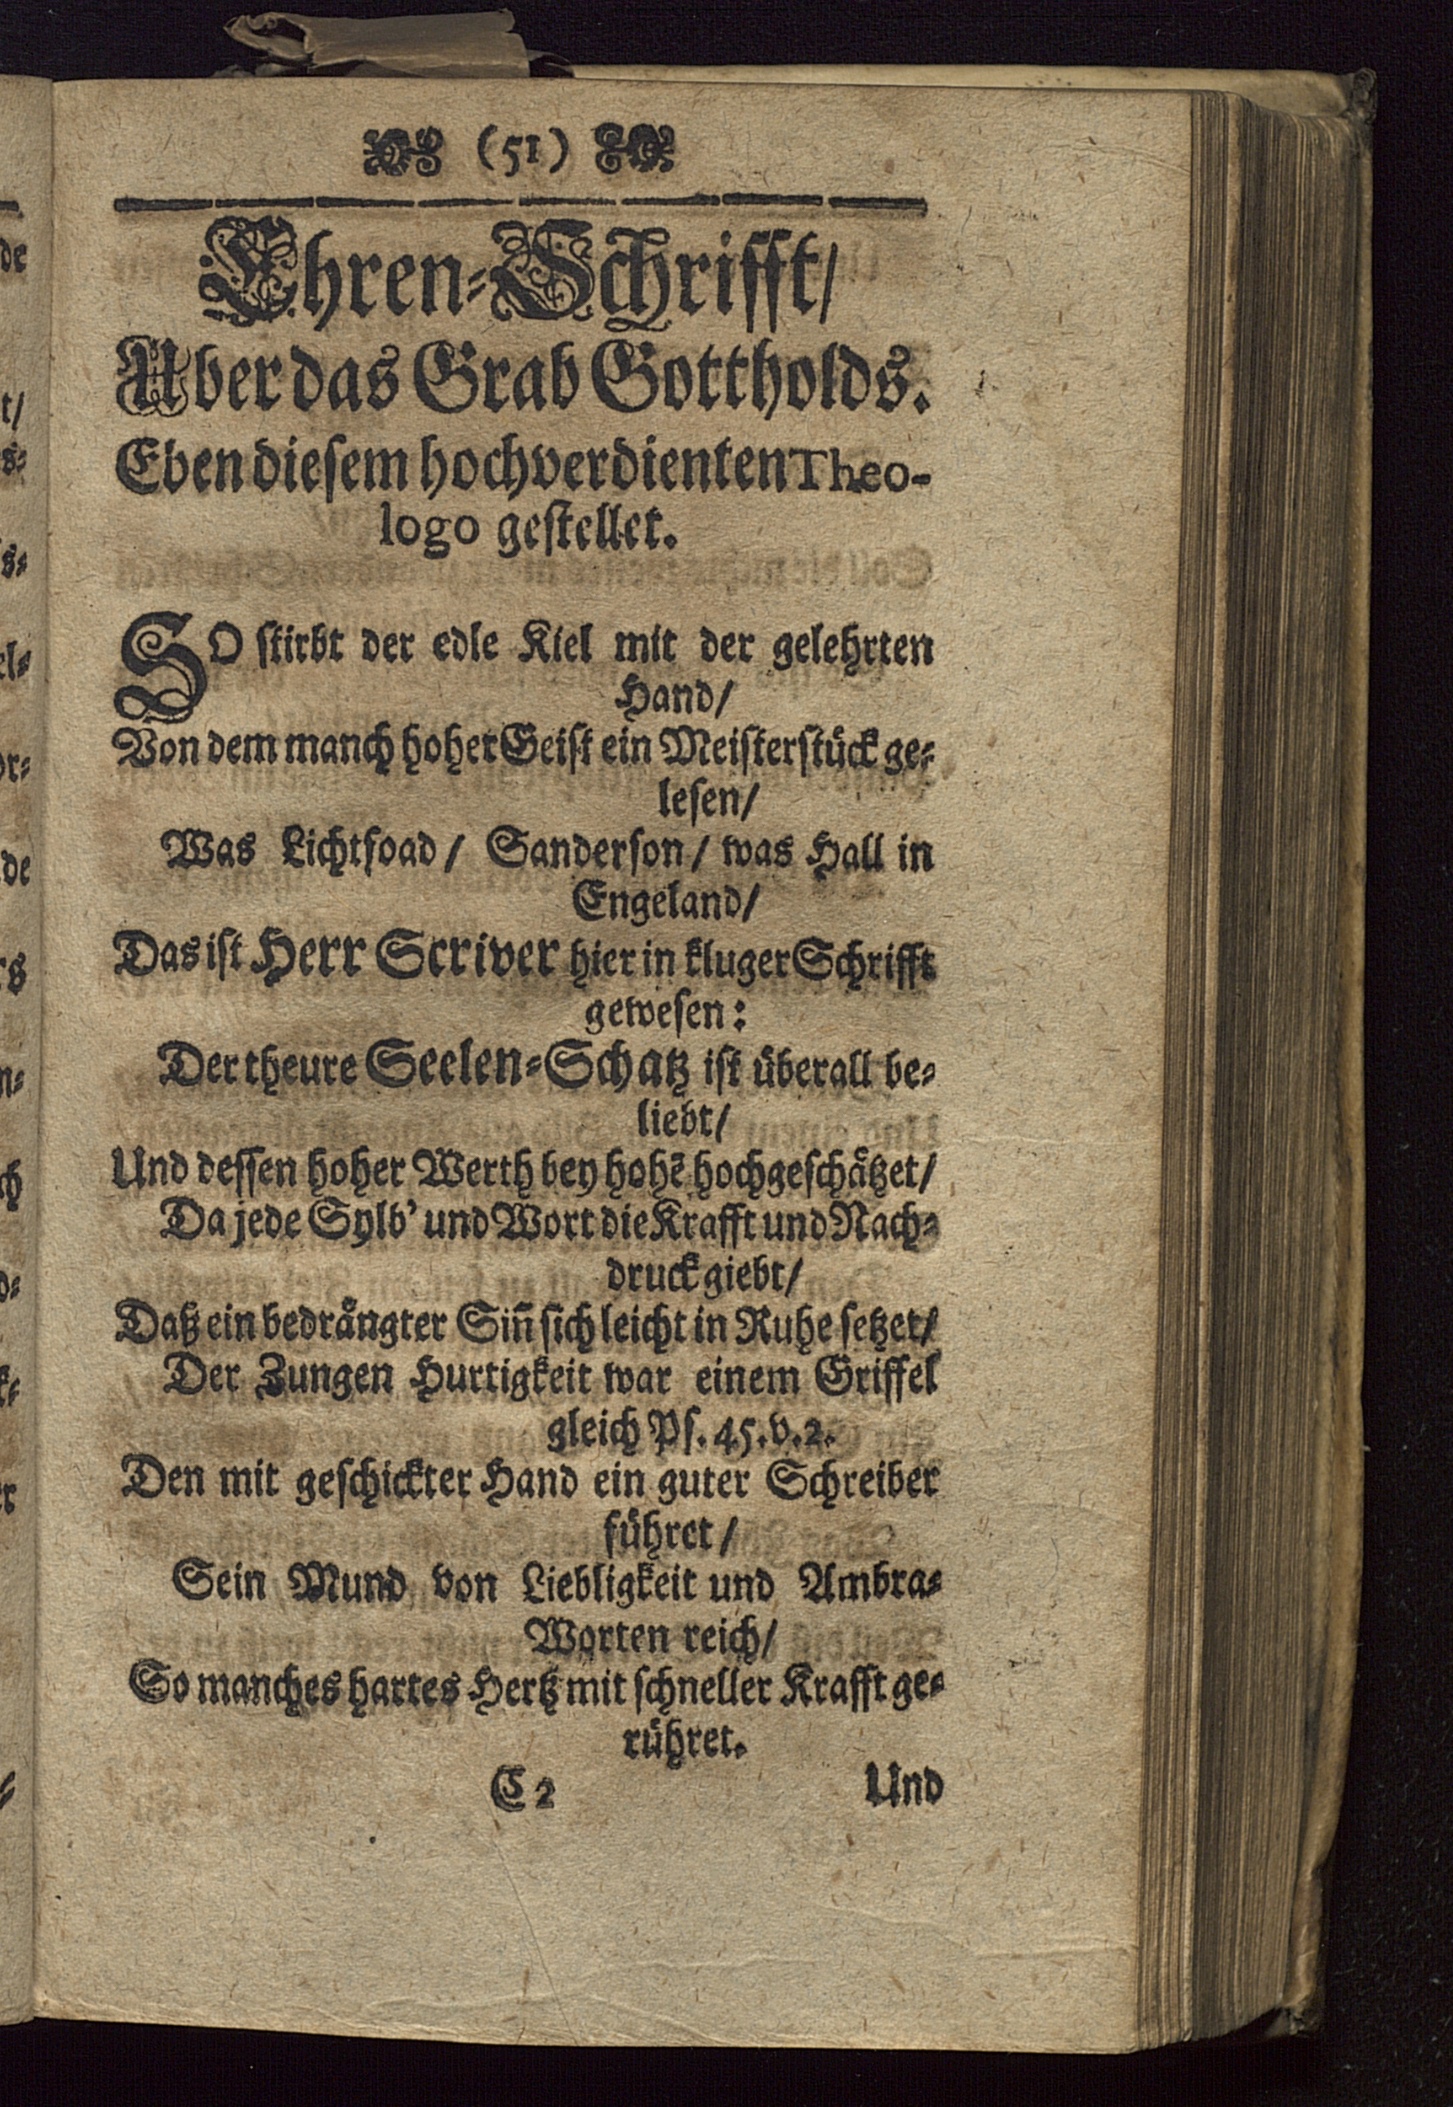 (51)
Ehren-Schrifft/
Uber das Grab Gottholds.
Eben diesem hochverdienten Theo-
logo gestellet.
SO stirbt der edle Kiel mit der gelehrten
Hand/
Von dem manch hoher Geist ein Meisterstück ge-
lesen/
Was Lichtfoad/ Sanderson/ was Hall in
Engeland/
Das ist Herr Scriver hier in kluger Schrifft
gewesen:
Der theure Seelen-Schatz ist überall be-
liebt/
Und dessen hoher Werth bey hohē hochgeschätzet/
Da jede Sylb' und Wort die Krafft und Nach-
druck giebt/
Daß ein bedrängter Siñ sich leicht in Ruhe setzet/
Der Zungen Hurtigkeit war einem Griffel
gleich Ps. 45. v. 2.
Den mit geschickter Hand ein guter Schreiber
führet/
Sein Mund von Liebligkeit und Ambra-
Worten reich/
So manches hartes Hertz mit schneller Krafft ge-
rühret.
C 2 Und